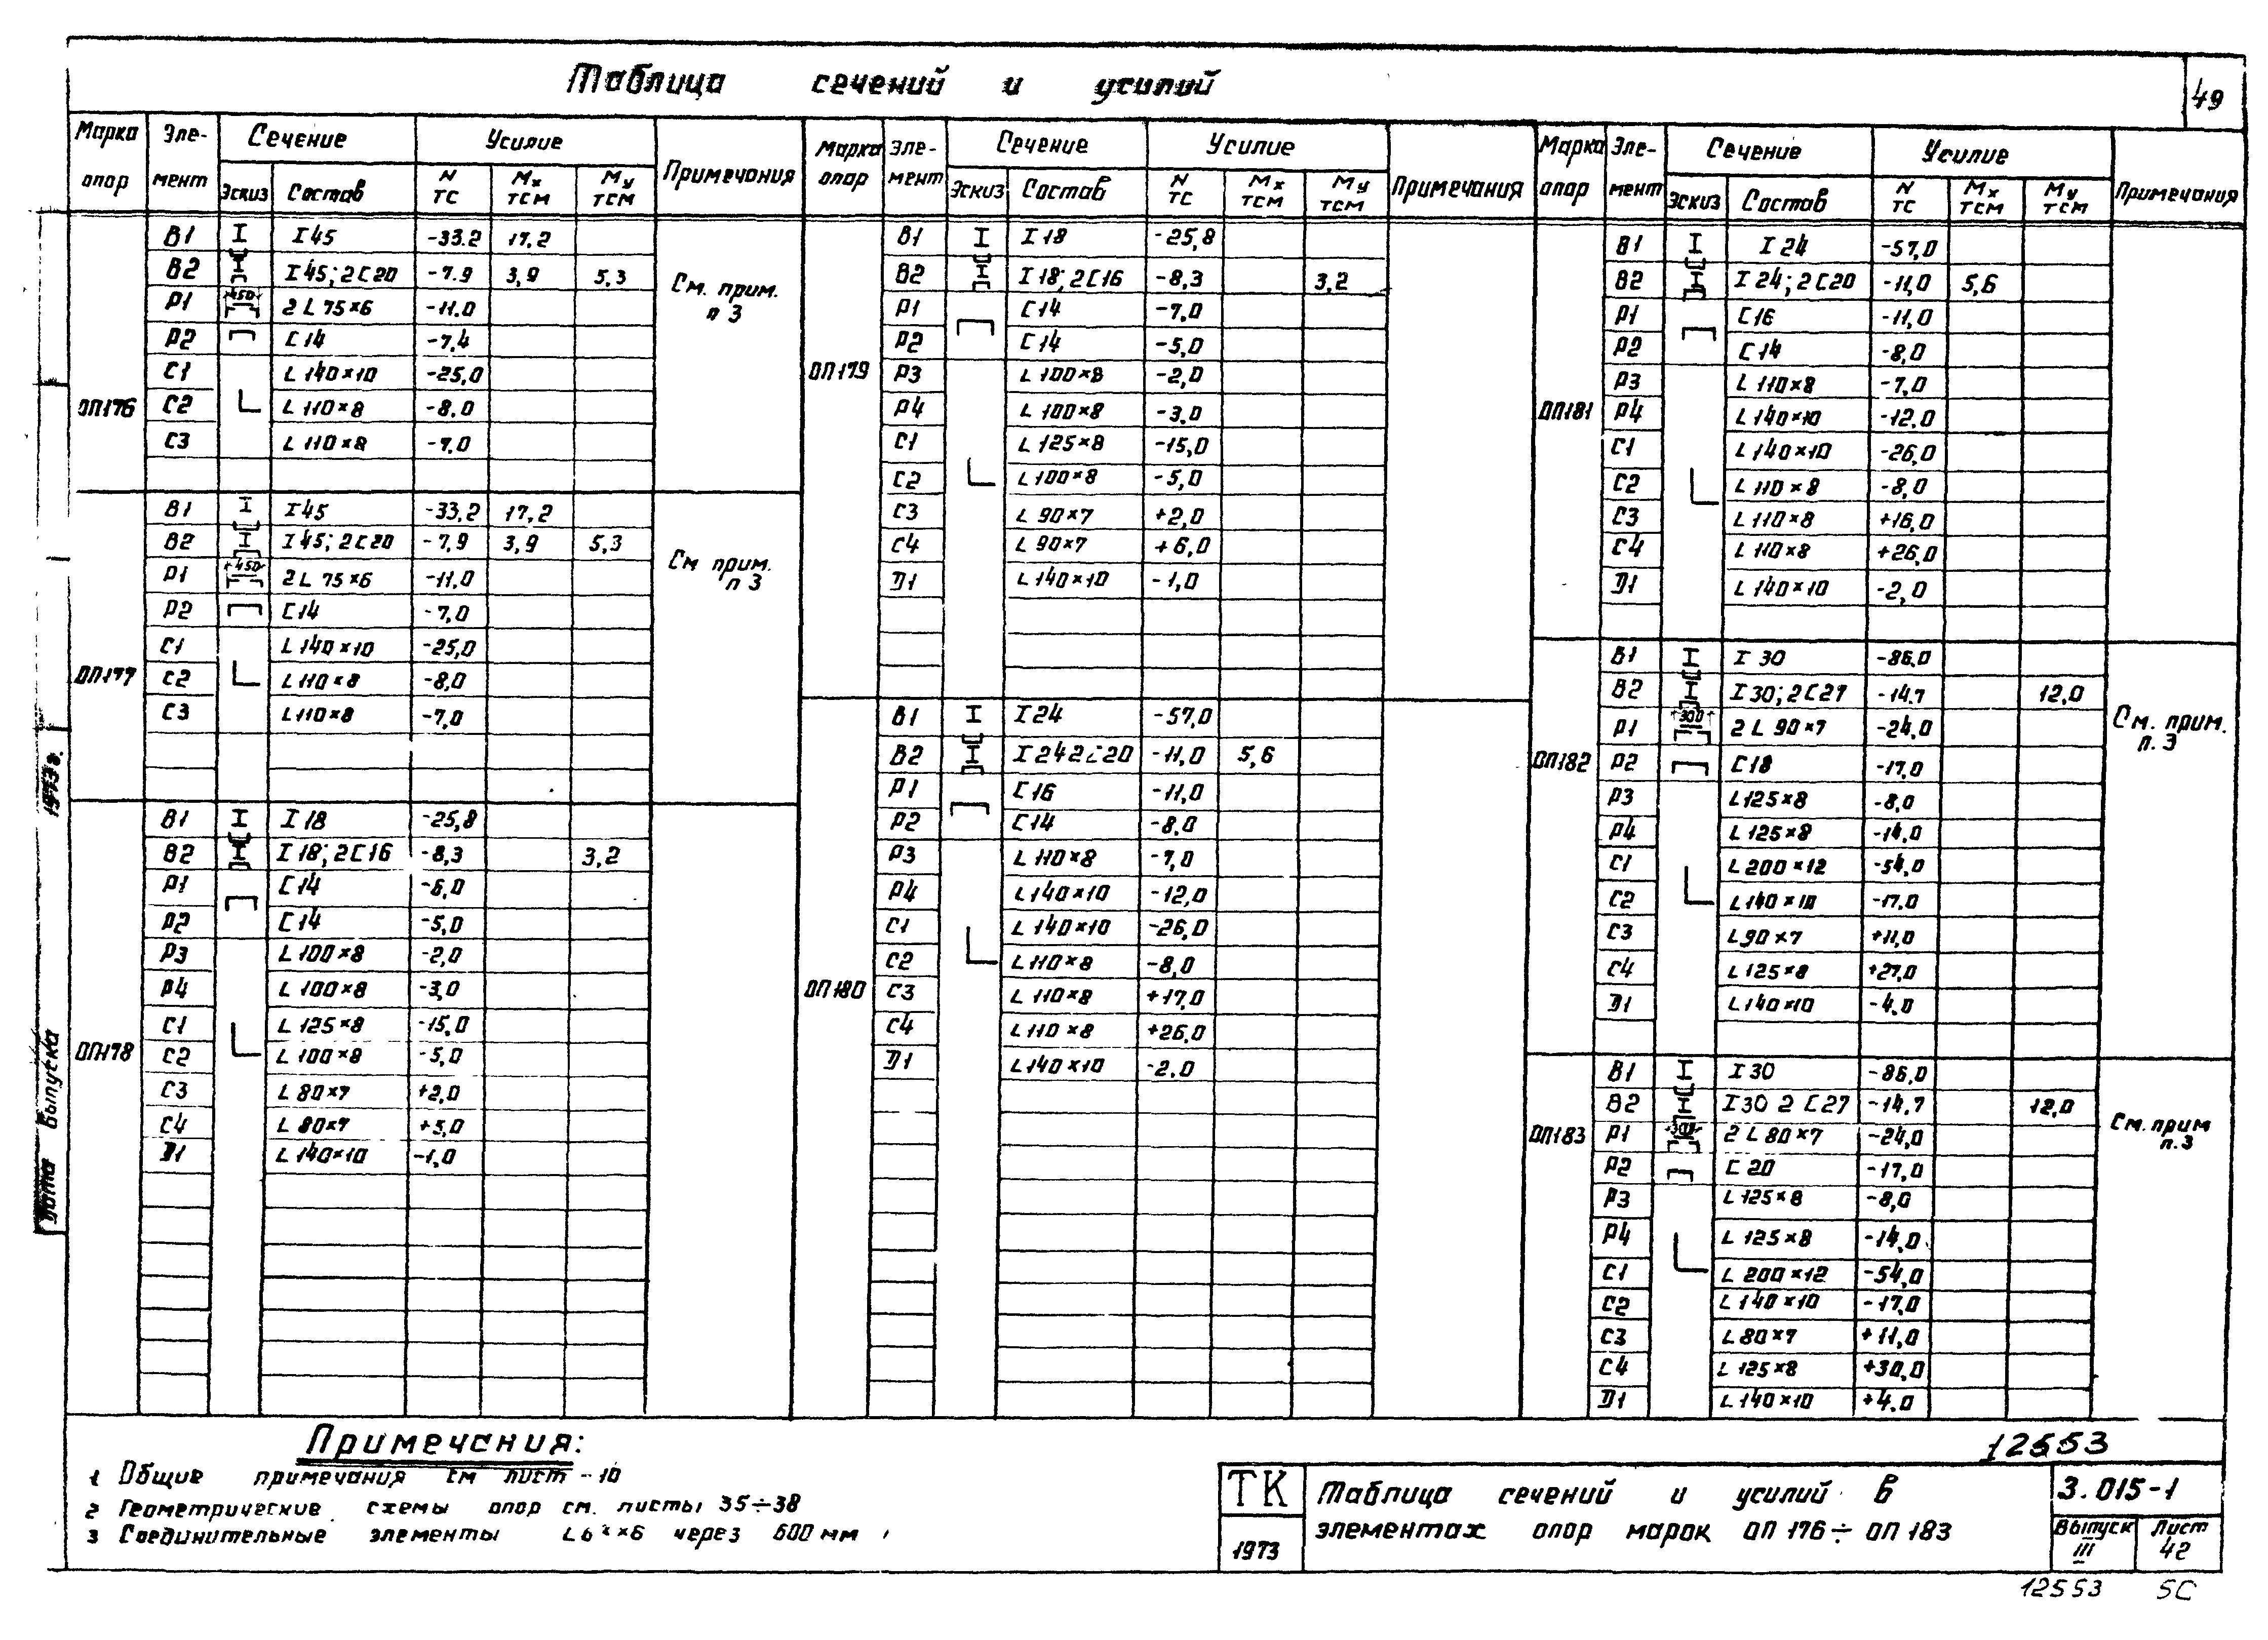 Таблица сечений и усилий
49
Марка опор Эле-мент Сечение Усилие Примечания
Эскиз Состав N ТС Mx ТСМ My ТСМ
ОП176
В1 I 45 -33.2 17,2
В2 I 45; 2С20 -7.9 3,9 5,3
См. прим. п 3
Р1 450 2 L 75×6 -11.0
Р2 С14 -7,4
С1 L 140×10 -25,0
С2 L 110×8 -8.0
С3 L 110×8 -7,0
ОП177
В1 I 45 -33,2 17,2
В2 I 45; 2С20 -7,9 3,9 5,3
См прим. п 3
Р1 450 2 L 75×6 -11,0
Р2 С14 -7,0
С1 L 140×10 -25,0
С2 L 110×8 -8,0
С3 L 110×8 -7,0
ОП178
В1 I 18 -25,8
В2 I 18; 2С16 -8,3 3,2
Р1 С14 -6,0
Р2 С14 -5,0
Р3 L 100×8 -2,0
Р4 L 100×8 -3,0
С1 L 125×8 -15,0
С2 L 100×8 -5,0
С3 L 80×7 +2,0
С4 L 80×7 +5,0
D1 L 140×10 -1,0
Марка опор Эле-мент Сечение Усилие Примечания
Эскиз Состав N ТС Mx ТСМ My ТСМ
ОП179
В1 I 18 -25,8
В2 I 18; 2С16 -8,3 3,2
Р1 С14 -7,0
Р2 С14 -5,0
Р3 L 100×8 -2,0
Р4 L 100×8 -3,0
С1 L 125×8 -15,0
С2 L 100×8 -5,0
С3 L 90×7 +2,0
С4 L 90×7 +6,0
D1 L 140×10 -1,0
ОП180
В1 I 24 -57,0
В2 I 24 2С20 -11,0 5,6
Р1 С16 -11,0
Р2 С14 -8,0
Р3 L 110×8 -7,0
Р4 L 140×10 -12,0
С1 L 140×10 -26,0
С2 L 110×8 -8,0
С3 L 110×8 +17,0
С4 L 110×8 +26,0
D1 L 140×10 -2.0
Марка опор Эле-мент Сечение Усилие Примечания
Эскиз Состав N ТС Mx ТСМ My ТСМ
ОП181
В1 I 24 -57,0
В2 I 24; 2С20 -11,0 5,6
Р1 С16 -11,0
Р2 С14 -8,0
Р3 L 110×8 -7,0
Р4 L 140×10 -12,0
С1 L 140×10 -26,0
С2 L 110×8 -8,0
С3 L 110×8 +16,0
С4 L 110×8 +26,0
D1 L 140×10 -2,0
ОП182
В1 I 30 -86,0
В2 I 30; 2С27 -14.7 12,0
См. прим. п. 3
Р1 300 2 L 90×7 -24,0
Р2 С18 -17,0
Р3 L 125×8 -8,0
Р4 L 125×8 -14,0
С1 L 200×12 -54,0
С2 L 140×10 -17,0
С3 L 90×7 +11,0
С4 L 125×8 +27,0
D1 L 140×10 -4.0
ОП183
В1 I 30 -86,0
В2 I 30 2 С27 -14,7 12,0
См. прим п. 3
Р1 300 2 L 80×7 -24,0
Р2 С 20 -17,0
Р3 L 125×8 -8,0
Р4 L 125×8 -14,0
С1 L 200×12 -54,0
С2 L 140×10 -17,0
С3 L 80×7 +11,0
С4 L 125×8 +30,0
D1 L 140×10 +4.0
Дата выпуска 1973г.
Примечания:
1 Общие примечания см лист - 10
2 Геометрические схемы опор см. листы 35÷38
3 Соединительные элементы через 600 мм
12553
ТК
1973
Таблица сечений и усилий в
элементах опор марок ОП 176÷ ОП 183
3.015-1
Выпуск III
Лист 42
12553 5С